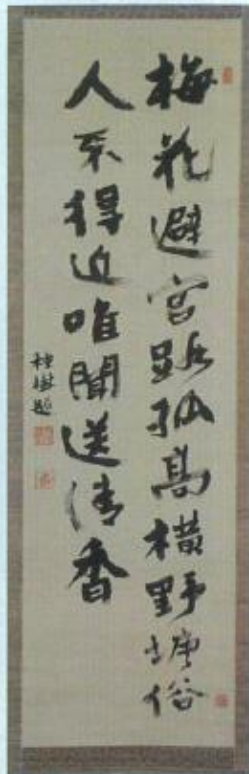 梅花避宮跡孤高横野塘俗
人不得近唯聞送清香
樹題